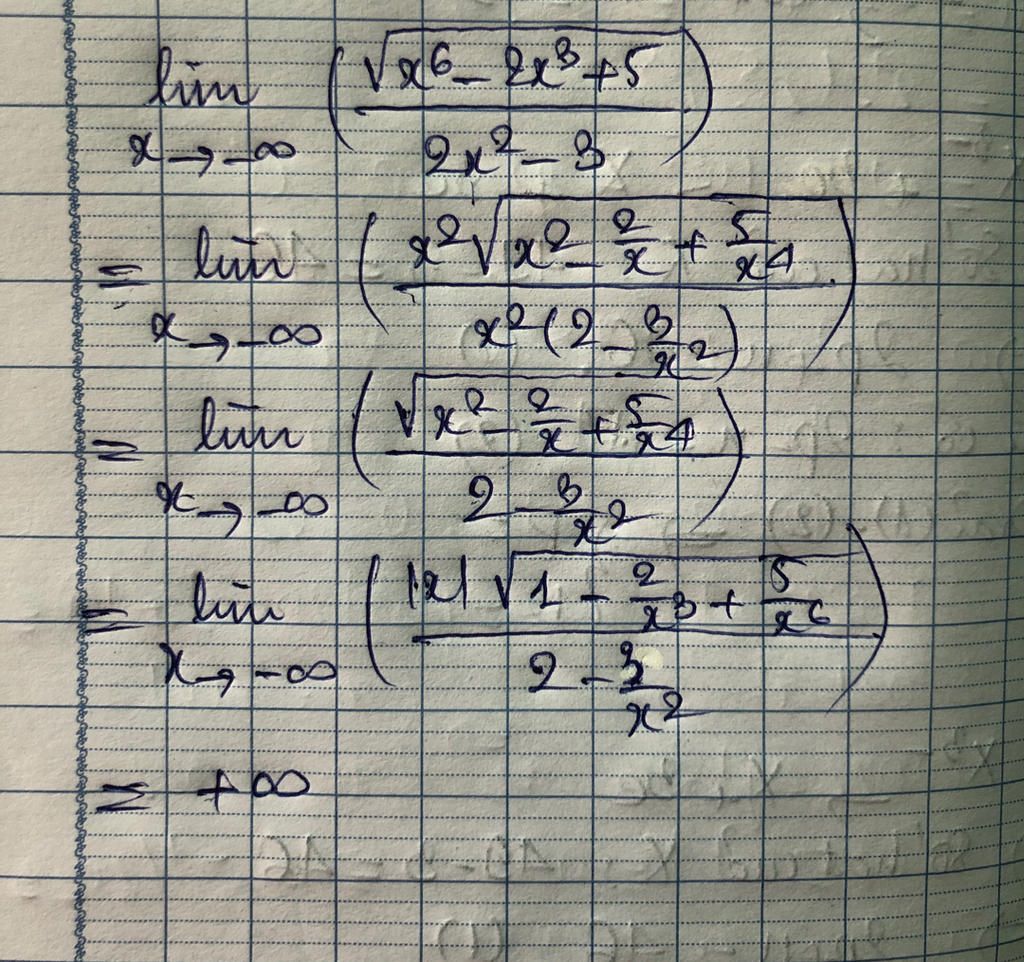 lim (√(x⁶ - 2x³ + 5) / (2x² - 3))
x → -∞
= lim (x²√(x² - 2/x + 5/x⁴) / (x²(2 - 3/x²)))
x → -∞
= lim (√(x² - 2/x + 5/x⁴) / (2 - 3/x²))
x → -∞
= lim (|x|√(1 - 2/x³ + 5/x⁶) / (2 - 3/x²))
x → -∞
= +∞